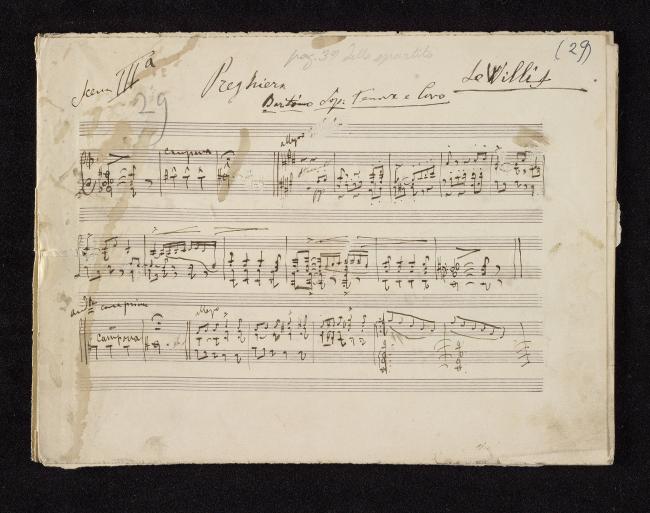 pag. 39 dello spartito
(29)
Scena IIIª
Preghiera
Le Willis
29
Baritono Sop: Tenor e Coro
allegro
campana
pp
campana
allegro